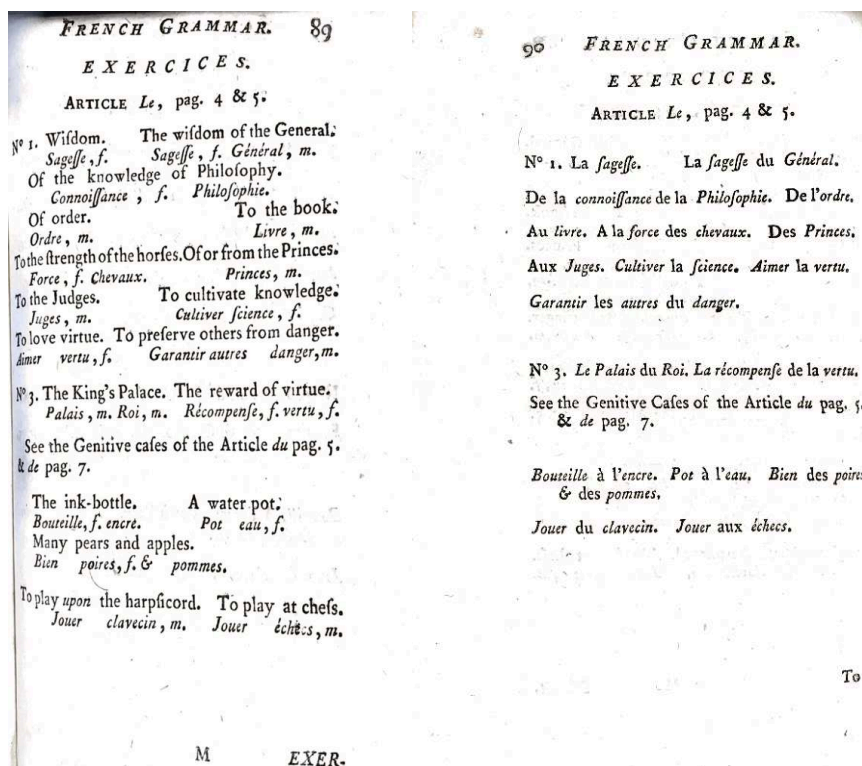 FRENCH GRAMMAR. 89
EXERCICES.
ARTICLE Le, pag. 4 & 5.
Nº 1. Wiſdom. The wiſdom of the General.
Sageſſe, f. Sageſſe, f. Général, m.
Of the knowledge of Philoſophy.
Connoiſſance, f. Philoſophie.
Of order. To the book.
Ordre, m. Livre, m.
To the ſtrength of the horſes. Of or from the Princes.
Force, f. Chevaux. Princes, m.
To the Judges. To cultivate knowledge.
Juges, m. Cultiver ſcience, f.
To love virtue. To preſerve others from danger.
Aimer vertu, f. Garantir autres danger, m.
Nº 3. The King's Palace. The reward of virtue.
Palais, m. Roi, m. Récompenſe, f. vertu, f.
See the Genitive caſes of the Article du pag. 5.
& de pag. 7.
The ink-bottle. A water pot.
Bouteille, f. encre. Pot eau, f.
Many pears and apples.
Bien poires, f. & pommes.
To play upon the harpſicord. To play at cheſs.
Jouer clavecin, m. Jouer échecs, m.
M EXER-
90 FRENCH GRAMMAR.
EXERCICES.
ARTICLE Le, pag. 4 & 5.
Nº 1. La ſageſſe. La ſageſſe du Général.
De la connoiſſance de la Philoſophie. De l'ordre.
Au livre. A la force des chevaux. Des Princes.
Aux Juges. Cultiver la ſcience. Aimer la vertu.
Garantir les autres du danger.
Nº 3. Le Palais du Roi. La récompenſe de la vertu.
See the Genitive Caſes of the Article du pag. 5.
& de pag. 7.
Bouteille à l'encre. Pot à l'eau. Bien des poires
& des pommes.
Jouer du clavecin. Jouer aux échecs.
To